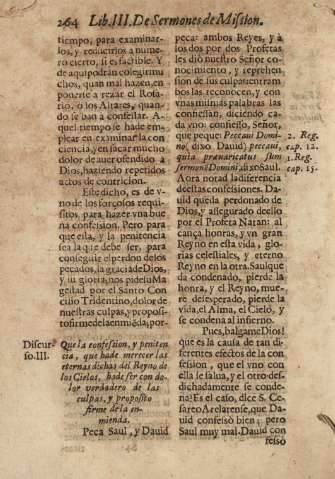 264 Lib.III. De Sermones de Mission.
tiempo, para examinar-
los, y reducirlos a nume-
ro cierto, si es factible. Y
de aqui podràn colegir mu
chos, quan mal hazen, en
ponerse a rezar el Rosa-
rio, o los Altares, quan-
do se van à confessar. A-
quel tiempo se hade em-
plear en examinar la con
ciencia, y en sacar mucho
dolor de auer ofendido à
Dios, haziendo repetidos
actos de contricion.
Este dicho, es de v-
no de los forçosos requi-
sitos, para hazer vna bue
na confession. Pero para
que esta, y la penitencia
sea la que debe ser, para
conseguir el perdon de los
pecados, la gracia de Dios,
y su gloria, nos pide su Ma
gestad por el Santo Con
cilio Tridentino, dolor de
nuestras culpas, y proposi-
to firme de la enmieda, por-
Discur-
so.III.
Que la confession, y peniten
cia, que hade merecer las
eternas dichas del Reyno de
los Cielos, hade ser con do-
lor verdadero de las
culpas, y proposito
firme de la en-
mienda.
Peca Saul, y Dauid
peca: ambos Reyes, y à
los dos por dos Profetas
les diò nuestro Señor co-
nocimiento, y reprehen
sion de sus culpas: entram
bos las reconocen, y con
vnas mismas palabras las
confiessan, diciendo ca
da vno: confiesso, Señor,
que peque: Peccaui Domi-
no, dixo Dauid; peccaui,
quia praeuaricatus sum
sermonē Domini, dixo Saul.
Aora notad la diferencia
de estas confessiones. Da-
uid queda perdonado de
Dios, y assegurado de ello
por el Profeta Natan: al
cança honras, y vn gran
Reyno en esta vida, glo-
rias celestiales, y eterno
Reyno en la otra. Saul que
da condenado, pierde la
honra, y el Reyno, mue-
re desesperado, pierde la
vida, el Alma, el Cielo, y
se condena al infierno.
Pues, balgame Dios!
que es la causa de tan di-
ferentes efectos de la con
fession, que el vno con
ella se salua, y el otro des-
dichadamente se conde-
na? Es el caso, dize S. Ce-
sareo Arelatense, que Da-
uid confesò bien; pero
Saul muy mal. Dauid con
fessò
2. Reg.
cap. 12.
1. Reg.
cap. 15.